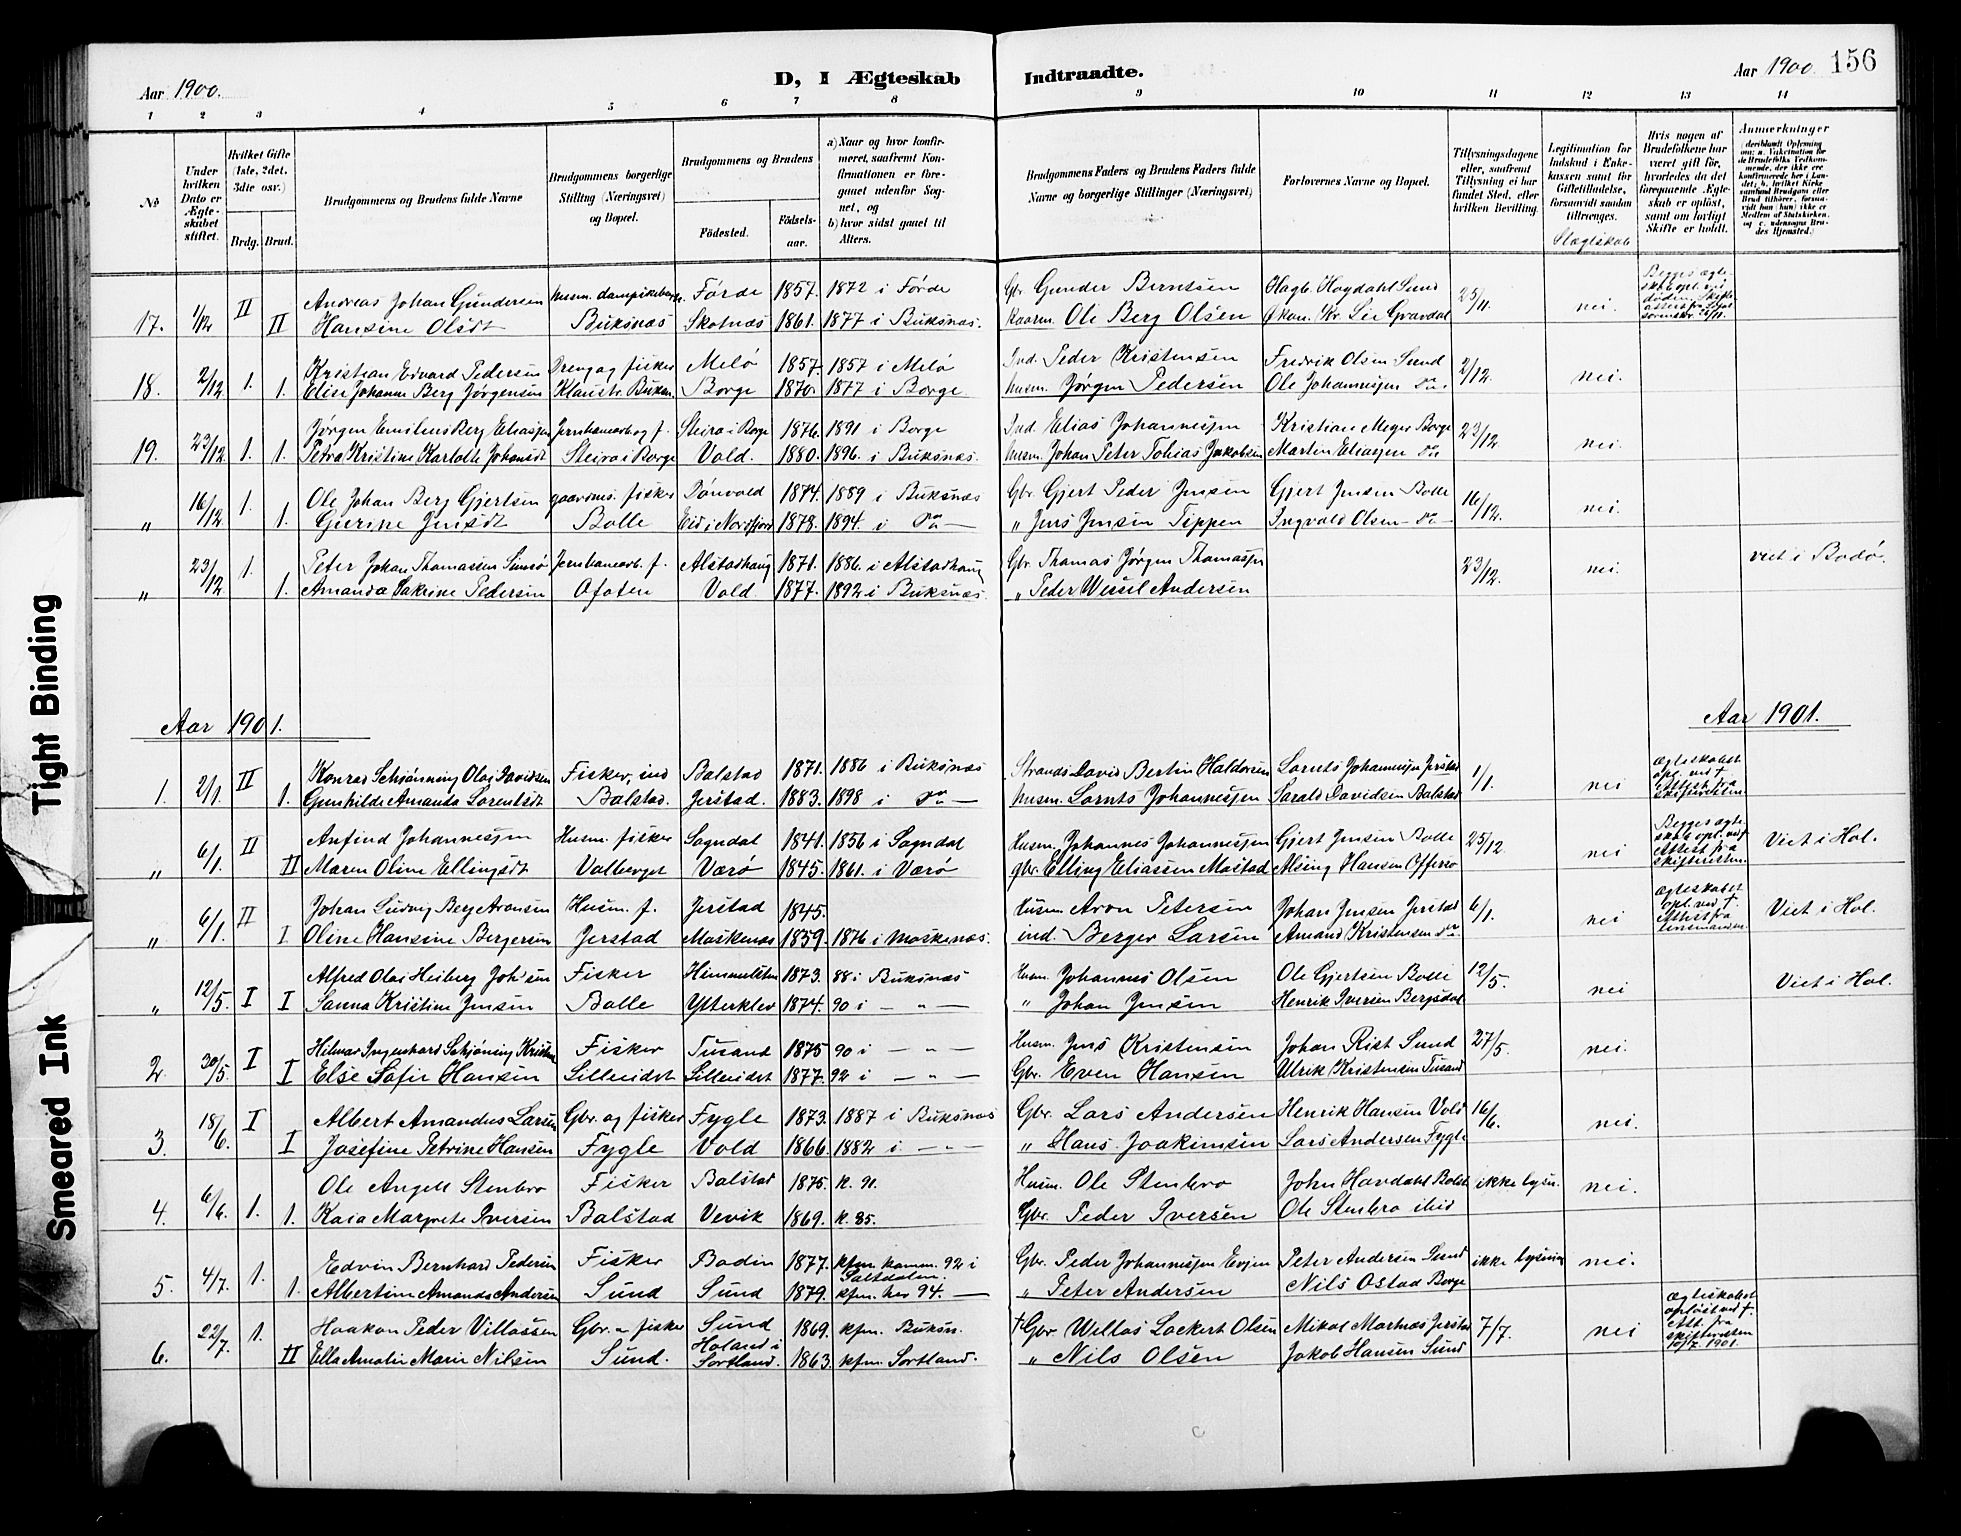 Aar 1900.
D, I Ægteskab Indtraadte.
Aar 1900 156
1 2 3 4 5 6 7 8 9 10 11 12 13 14
No
Under hvilken Dato er Ægteskabet stiftet.
Hvilket Gifte (1ste, 2det, 3die osv.)
Brdg. Brud.
Brudgommens og Brudens fulde Navne
Brudgommens borgerlige Stilling (Næringsvei) og Bopæl.
Brudgommens og Brudens
Fødested.
Fødselsaar.
a) Naar og hvor konfirmeret, saafremt Konfirmationen er foregaaet udenfor Sognet, og
b) hvor sidst gaaet til Alters.
Brudgommens Faders og Brudens Faders fulde Navne og borgerlige Stillinger (Næringsvei)
Forlovernes Navne og Bopæl.
Tillysningsdagene eller, saafremt Tillysning ei har fundet Sted, efter hvilken Bevilling.
Legitimation for Indskud i Enkekassen samt for Giftetilladelse, forsaavidt saadan tiltrænges.
Slægtskab
Hvis nogen af Brudefolkene har været gift før, hvorledes da det foregaaende Ægteskab er opløst, samt om lovligt Skifte er holdt.
Anmerkninger
17. 1/12 II Andreas Johan Gundersen husm. dampskibsexp. Førde 1857. 1872 i Førde Gbr. Gunder Berntsen Hagb. Høydahl Sund 25/11. nei.
II Hansine Olsdt Buksnæs Skotnæs 1861. 1877 i Buksnæs. Kaarm. Ole Berg Olsen Økon. Kr. Lie Gravdal
18. 2/12 1. Kristian Edvard Pedersen Dreng og fisker Melø 1857. 1857 i Melø Ind. Peder Kristensen Fredrik Olsen Sund 2/12. nei.
1. Elise Johanne Berg Jørgensen Klaustr. Buksn. Borge 1870. 1877 i Borge. husm. Jørgen Pedersen Ole Johannesen do.
19. 23/12 1. Jørgen Emilius Berg Eliassen Jernbanearb. og f. Steira i Borge 1876. 1891 i Borge Ind. Elias Johannesen Kristian Meyer Borge 23/12. nei.
1. Petra Kristine Karlotte Johansdt Steira i Borge Vold. 1880. 1896. i Buksnæs. husm. Johan Peter Tobias Jakobsen Martin Eliassen do
" 16/12 1. Ole Johan Berg Gjertsen gaardms. fisker Dønvold 1874. 1889 i Buksnæs Gbr. Gjert Peder Jensen Gjert Jensen Bolle 16/12. nei.
1. Gurine Jensdt Bolle Eid i Nordfjord 1878. 1894. i do — " Jens Jensen Tippen Ingvald Olsen do —
" 23/12 1. Peter Johan Thomassen Simsø Jernbanearb. f. Alstadhaug 1871. 1886. i Alstadhaug Gbr. Thomas Jørgen Thomassen 23/12. nei. viet i Bodø.
1. Amanda Katrine Pedersen Ofoten Vold. 1877. 1892 i Buksnæs. " Peder Wessel Andersen
Aar 1901. Aar 1901.
1. 2/1 II Konrad Schjønning Olai Davidsen Fisker, ind Balstad 1871. 1886 i Buksnæs Strands. David Bertin Haldorsen Lornts Johannesen Jerstad 1/1. nei ægteskabet opl. ved † Attest fra skifteretten
1. Gunhilde Amanda Lorentsdt Balstad. Jerstad. 1883. 1898 i do — husm. Lornts Johannessen Sarald Davidsen Balstad
" 6/1. II Anfind Johannessen Husm. fisker Sogndal 1841. 1856 i Sogndal Husm. Johannes Johannessen Gjert Jensen Bolle 25/12 nei Begges ægteskab opl. ved † Attest fra skifteretten. Viet i Hol.
II Maren Oline Ellingsdt Valberget Værø 1845. 1861. i Værø gbr. Elling Eliassen Mostad Meing Hansen Offersø
" 6/1. II Johan Ludvig Berg Aronsen Husm. f. Jerstad 1845. Husm Aron Petersen Johan Jensen Jerstad 6/1. nei ægteskabet opl. ved †. Attest fra lensmanden. Viet i Hol.
I Oline Hansine Bergersen Jerstad Moskenæs 1859. 1876 i Moskenæs. ind. Berger Larsen Amand Kristensen do.
" 12/5. I I Alfred Olai Heiberg Joh'sen Fisker Himmelsten 1873. 88 i Buksnæs Husm. Johannes Olsen Ole Gjertsen Bolle 12/5. nei Viet i Hol.
Sanna Kristine Jensen Bolle Ytterklev 1874. 90 i — " — " Johan Jensen Henrik Iversen Bergsdal
2. 30/5. I Hilmar Ingenhard Schjøning Kristen Fisker Tusand 1875 90 i — " — Husm. Jens Kristensen Johan Rist Sund 27/5. nei.
I Else Sofie Hansen Lilleeidet Lilleeidet 1877. 92 i — " — Gbr. Even Hansen Ulrik Kristensen Tusand
3. 18/6. I Albert Amandus Larsen Gbr. og fisker Fygle 1873. 1887 i Buksnæs Gbr. Lars Andersen Henrik Hansen Vold 16/6. nei.
I Josefine Petrine Hansen Fygle Vold 1866. 1882 i — " — " Hans Joakimsen Lars Andersen Fygle
4. 6/6. 1. Ole Angell Stenbro Fisker Balstad 1875. K. 91. Husm. Ole Stenbro John Hovdahl Balst. ikke lysn. nei.
1. Kaia Margrete Iversen Balstad Vevik 1869. K. 85. Gbr. Peder Iversen Ole Stenbro ibid
5. 4/7. 1. Edvin Bernhard Pedersen Fisker Bodin 1877. kfm. komm. 92 i Saltdalen. Gbr. Peder Johannessen Evjen Peter Andersen Sund ikke lysning nei.
1. Albertine Amanda Andersen Sund Sund 1879. kfm. her 94. — " Peter Andersen Nils Ostad Borge
6. 22/7. 1. Haakon Peder Villassen Gbr. - fisker Sund 1869. kfm. Buksn. † Gbr Willas Lockert Olsen Mikal Martnas Jerstad 7/7. nei ægteskabet opløst ved †. Att. fra skifteretten 10/7 1901.
II Ella Amalie Marie Nilsen Sund. Holand i Sortland. 1863. kfm. Sortland. " Nils Olsen Jakob Hansen Sund
Tight Binding
Smeared Ink